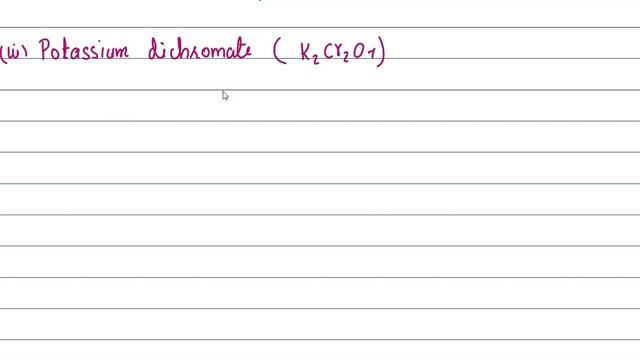 (iii) Potassium dichromate ( K₂Cr₂O7)